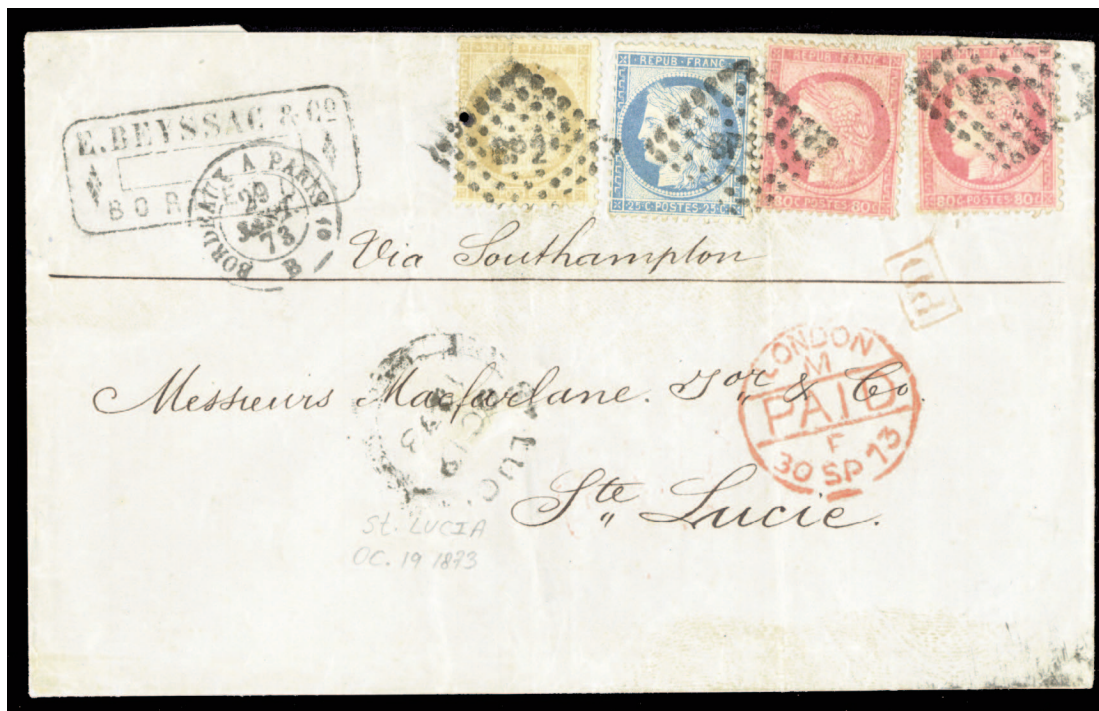 E. BEYSSAC & Co
BOR
BORDEAUX A PARIS 10
29
73
B
REPUB FRANC
BP 2
REPUB FRANC
25 C POSTES 25 C
80 C POSTES 80 C
80 C POSTES 80 C
Via Southampton
PD
LONDON
M
PAID
F
30 SP 73
Messieurs Macfarlane. Jor & Co.
LUC
Ste Lucie.
St. LUCIA
OC. 19 1873